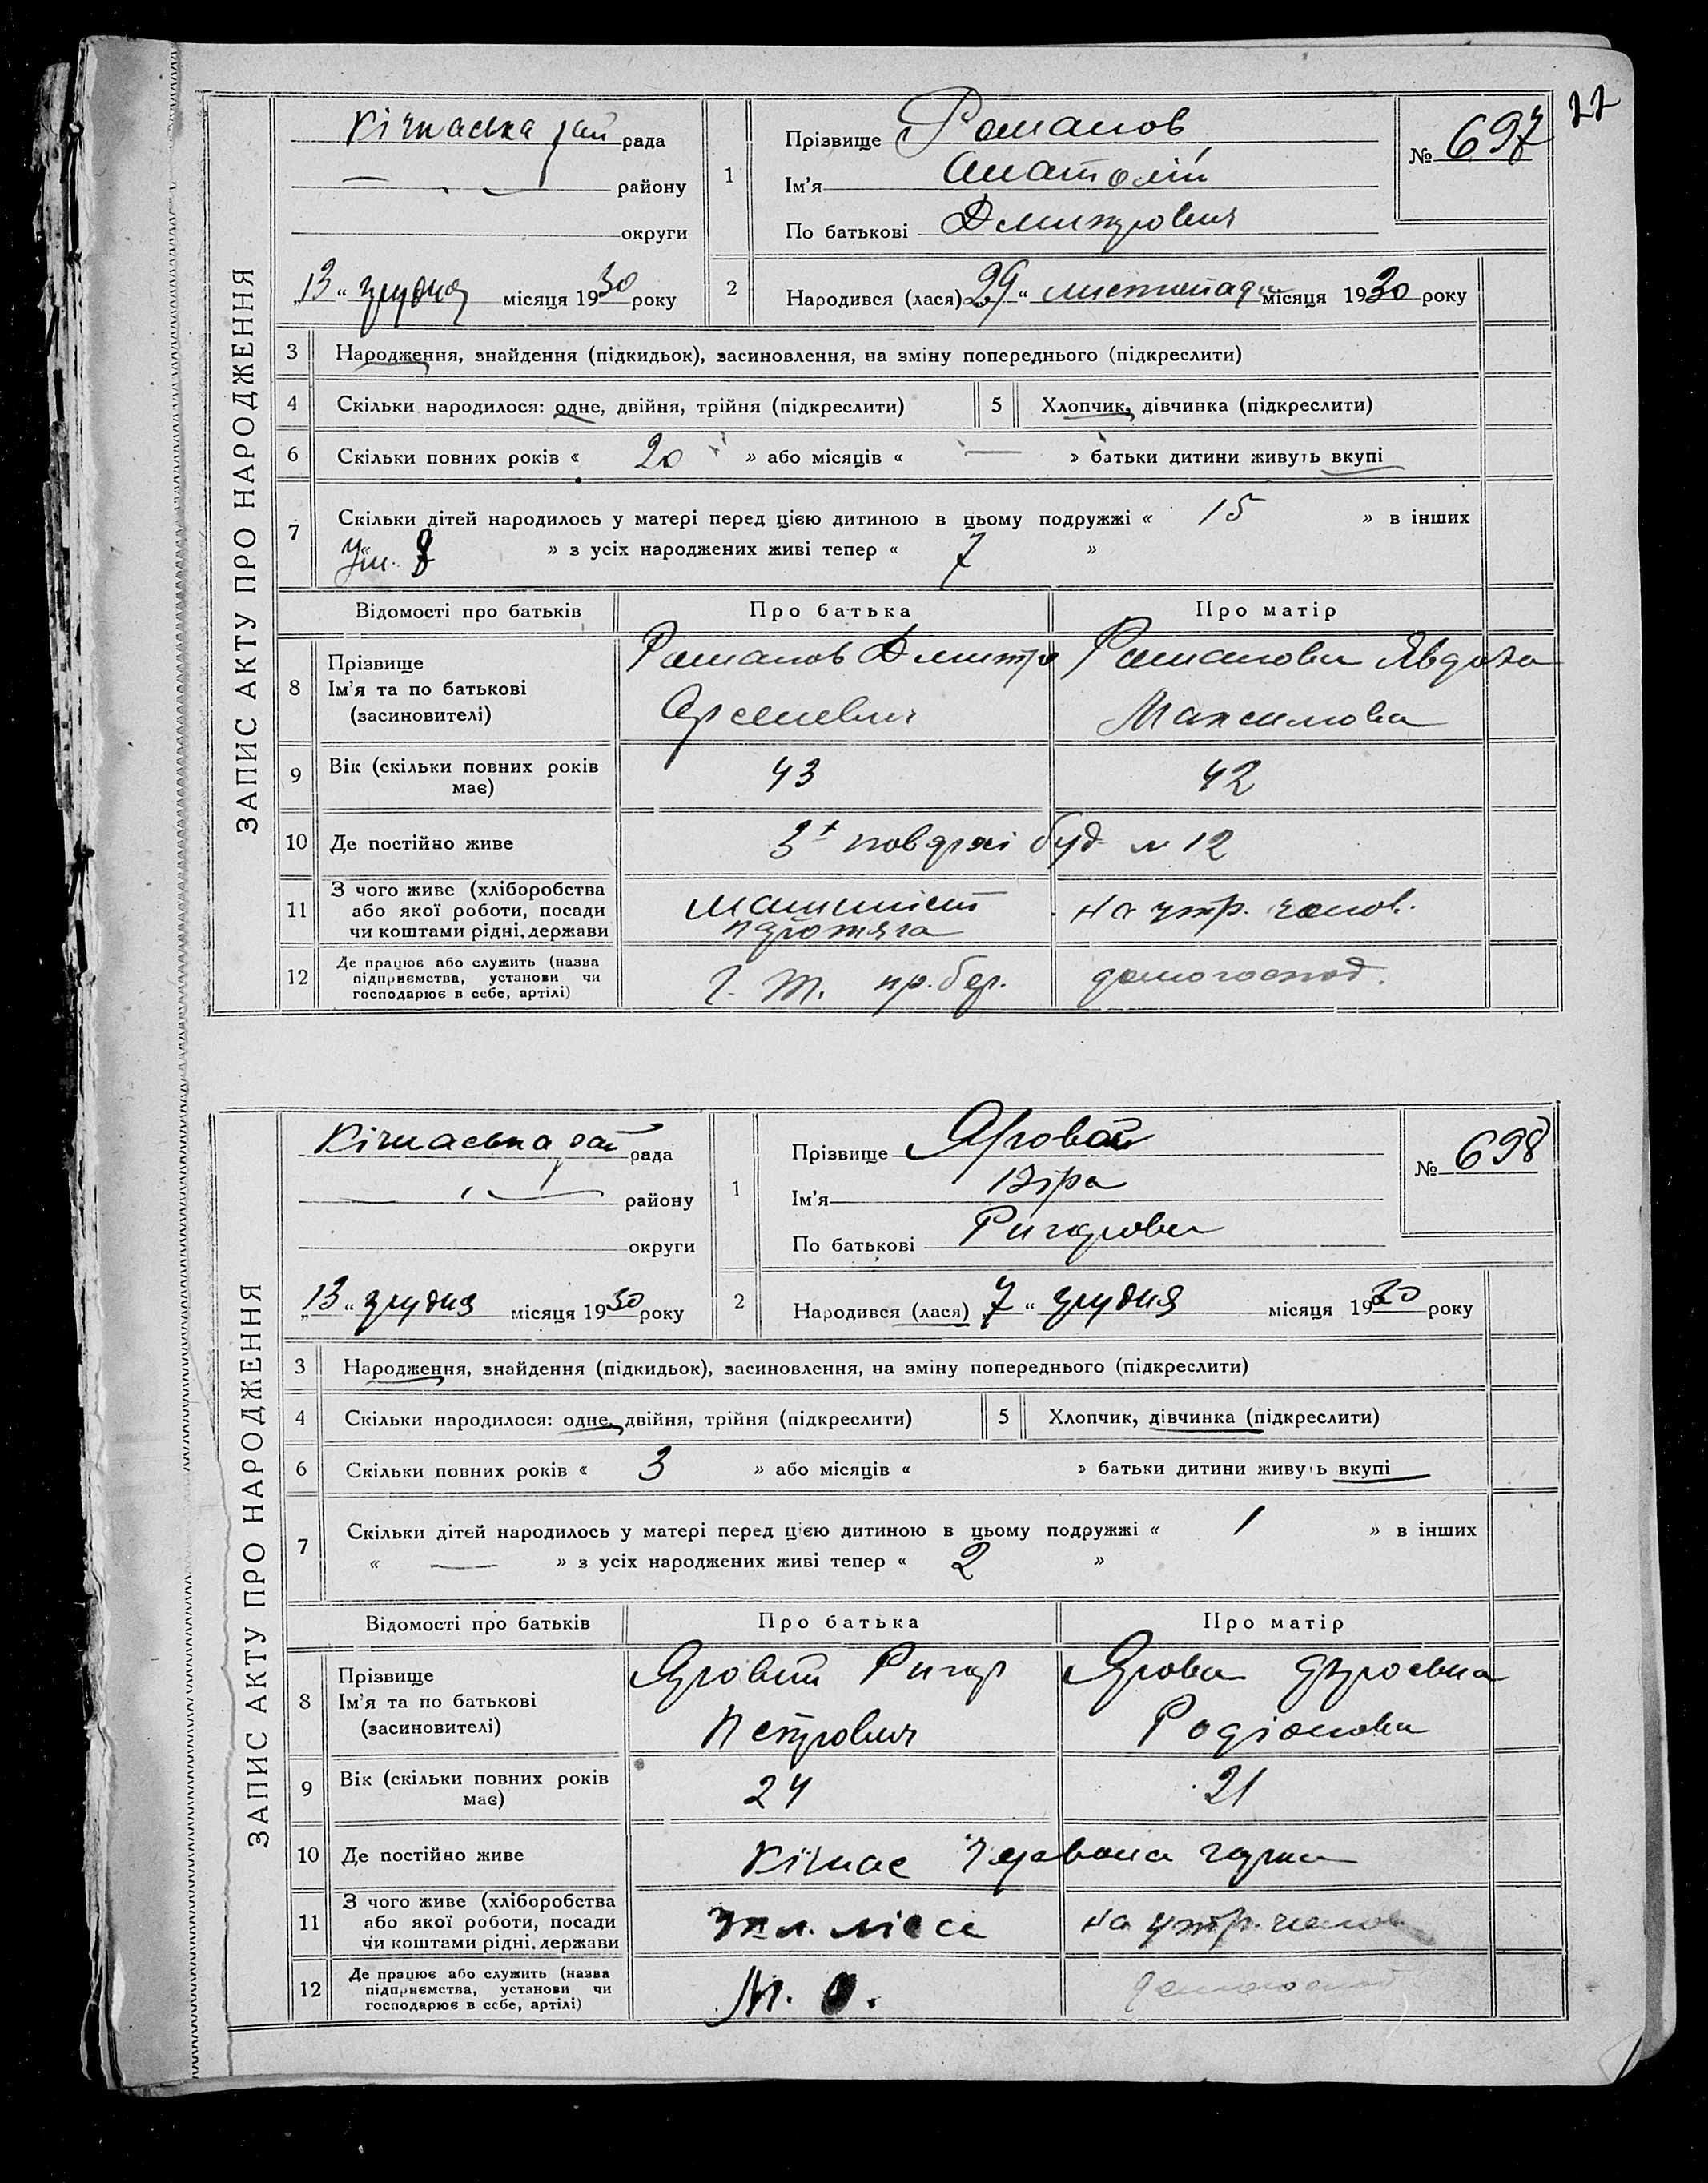 22
ЗАПИС АКТУ ПРО НАРОДЖЕННЯ
Кічкаська рай рада
району
округи
13 " грудня місяця 1930 року
1
Прізвище Романов
Ім'я Анатолій
По батькові Дмитрович
№ 697
2
Народився (лася) 29 " листопада місяця 1930 року
3 Народження, знайдення (підкидьок), засиновлення, на зміну попереднього (підкреслити)
4 Скільки народилося: одне, двійня, трійня (підкреслити) 5 Хлопчик, дівчинка (підкреслити)
6 Скільки повних років « 20 » або місяців « — » батьки дитини живуть вкупі
7 Скільки дітей народилось у матері перед цією дитиною в цьому подружжі « 15 » в інших
« ум. 8 » з усіх народжених живі тепер « 7 »
Відомості про батьків Про батька Про матір
8 Прізвище Ім'я та по батькові (засновителі)
Романов Дмитро Романова Явдоха
Арсеневич Максимовна
9 Вік (скільки повних років має) 43 42
10 Де постійно живе 3х повдрхі буд № 12
11 З чого живе (хліборобства або якої роботи, посади чи коштами рідні, держави
машиніст на утр. чолов.
12 Де працює або служить (назва підприємства, установи чи господарює в себе, артілі)
пр. бер. домогоспод.
ЗАПИС АКТУ ПРО НАРОДЖЕННЯ
Кічкаська рай рада
району
округи
13 " грудня місяця 1930 року
1
Прізвище Яровая
Ім'я Віра
По батькові Григоровна
№ 698
2
Народився (лася) 7 " грудня місяця 1930 року
3 Народження, знайдення (підкидьок), засиновлення, на зміну попереднього (підкреслити)
4 Скільки народилося: одне, двійня, трійня (підкреслити) 5 Хлопчик, дівчинка (підкреслити)
6 Скільки повних років « 3 » або місяців « » батьки дитини живуть вкупі
7 Скільки дітей народилось у матері перед цією дитиною в цьому подружжі « 1 » в інших
« — » з усіх народжених живі тепер « 2 »
Відомості про батьків Про батька Про матір
8 Прізвище Ім'я та по батькові (засиновителі)
Яровий Григор Ярова
Петрович Родіоновна
9 Вік (скільки повних років має) 24 21
10 Де постійно живе Кічкас
11 З чого живе (хліборобства або якої роботи, посади чи коштами рідні, держави
на утр. чолов
12 Де працює або служить (назва підприємства, установи чи господарює в себе, артілі)
М. О. домогоспод